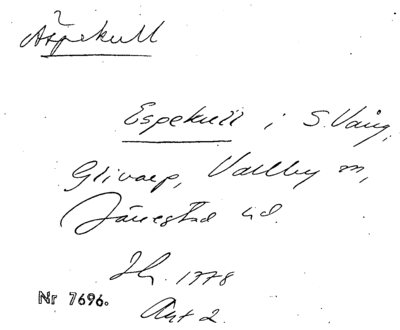 ?
Äspekull
Espekull i S. Vång,
Glivarp, Vallby m,
Järrestad hd.
Jb. 1778
Nr 7696.
Akt 2.